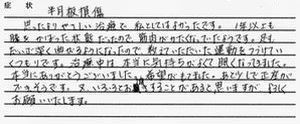 症状 半月板損傷
思ったよりやさしい治療で私としてはよかったです。1年以上も
膝をかばった状態だったので、筋肉がかたくなっていたようです。足も
だいぶ深く曲がるようになったので、教えていただいた運動をつづけていく
つもりです。治療中は本当に気持ちがよくて眠くなりました。
本当にありがとうございました。希望がもてました。あと少しで正座が
できそうです。又、いろいろとお することがあると思いますが よろしく
お願いいたします。